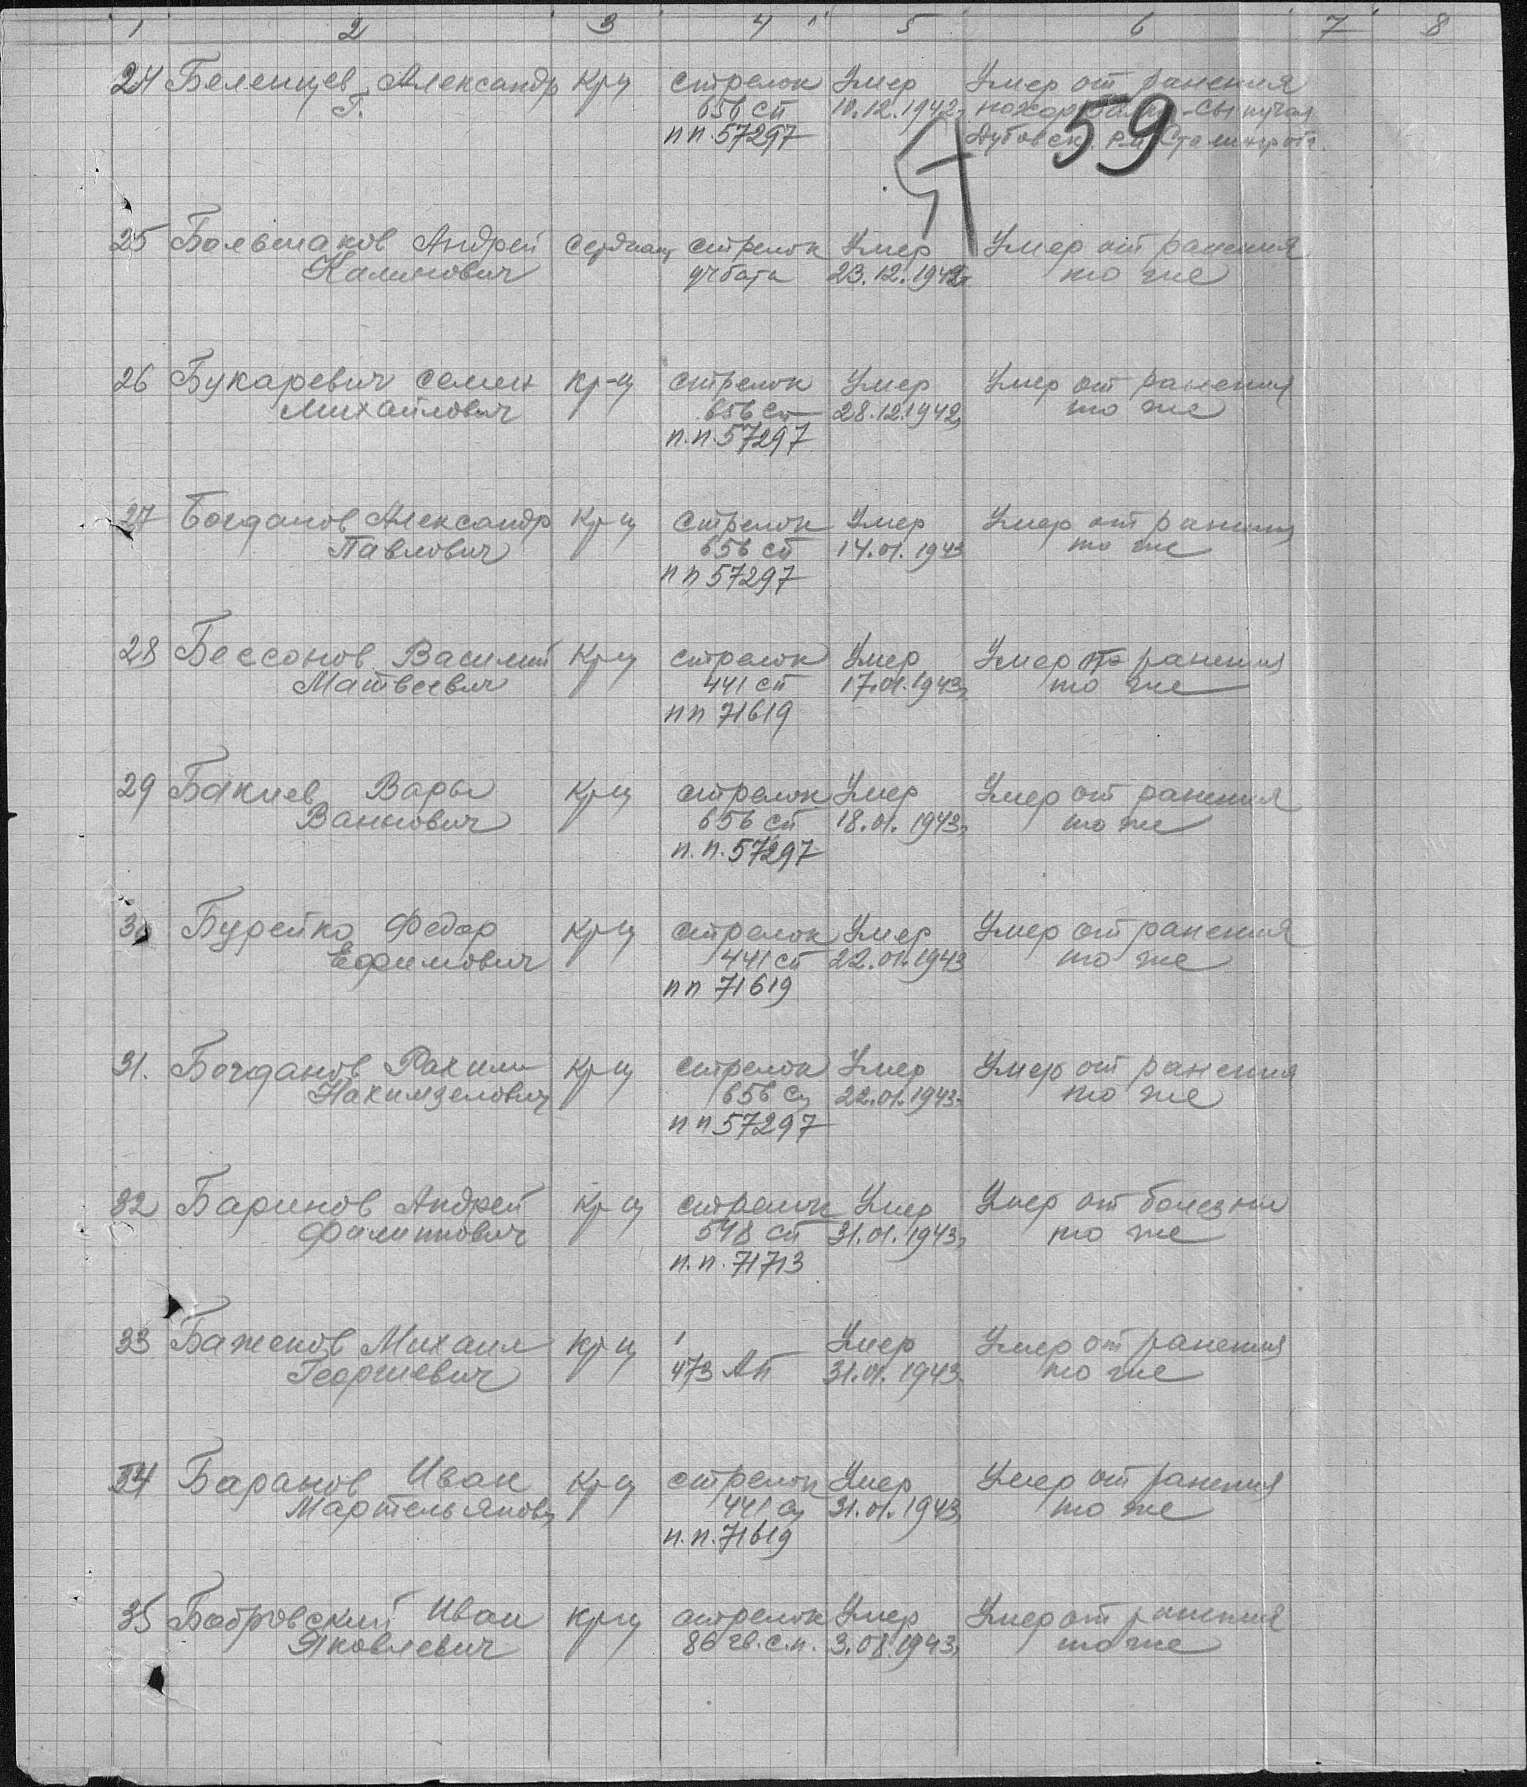 1 2 3 4 5 6 7 8
24 Беленцев Александр Крц стрелок Умер Умер от ранения
Г. 656 сп 10.12.1942 похор. -Сыпучая
пп 57297 Дубовск. р-н Сталингр
59
25 Большаков Андрей сержант стрелок Умер Умер от ранения
Калинович учбата 23.12.1942 то же
26 Букаревич Семен кр-ц стрелок Умер Умер от ранения
Михайлович 656 сп 28.12.1942 то же
п.п. 57297
27 Богданов Александр Крц стрелок Умер Умер от ранения
Павлович 656 сп 14.01.1943 то же
пп 57297
28 Бессонов Василий Крц стрелок Умер Умер от ранения
Матвеевич 441 сп 17.01.1943 то же
пп 71619
29 Бакиев Вары Крц стрелок Умер Умер от ранения
Ваннович 656 сп 18.01.1943 то же
п.п. 57297
30 Бурейко Федор Крц стрелок Умер Умер от ранения
Ефимович 441 сп 22.01.1943 то же
пп 71619
31. Богданов Рахим Крц стрелок Умер Умер от ранения
Нахимзелович 656 сп 22.01.1943 то же
пп 57297
32 Баринов Андрей Крц стрелок Умер Умер от болезни
Филиппович 548 сп 31.01.1943 то же
п.п. 71713
33 Баженов Михаил Крц Умер Умер от ранения
Георгиевич 473 АП 31.01.1943 то же
34 Баранов Иван Крц стрелок Умер Умер от ранения
Мартельянов 441 сп 31.01.1943 то же
п.п. 71619
35 Бобровский Иван крц стрелок Умер Умер от ранения
Яковлевич 86 гв.с.п. 3.08.1943 то же